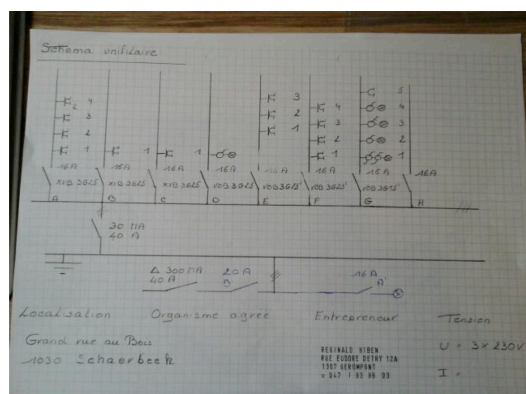 Schema unifilaire
3
5
4
2
4
4
3
2
3
3
2
1
2
2
1
1
1
1
1
16A 16A 16A 16A 16A 16A 16A 16A
XVB 3G2,5 XVB 3G2,5 XVB 3G2,5 VOB 3G2,5 VOB 3G2,5 VOB 3G2,5 VOB 3G2,5
A B C D E F G H
30 MA
40 A
Δ 300 MA 20A 16A
40A B A'
Localisation Organisme agréé Entrepreneur Tension
Grand rue au Bois
1030 Schaerbeek
REGINALD
RUE EUDORE DETHY 12A
1367 GEROMPONT
U = 3 x 230V
I =